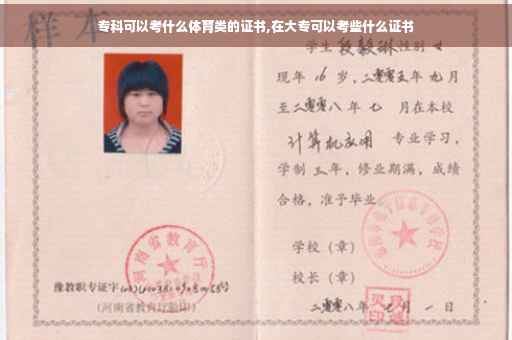 专科可以考什么体育类的证书,在大专可以考些什么证书
样本
学生 段毅琳 性别 女
现年 16 岁,二零零五年 九月
至二零零八年 七 月在本校
计算机应用 专业学习,
学制 三 年,修业期满,成绩
合格,准予毕业。
学校(章)
校长(章)
二零零八年 七月 一 日
河南省教育厅
豫教职专证字
(河南省教育厅验印)